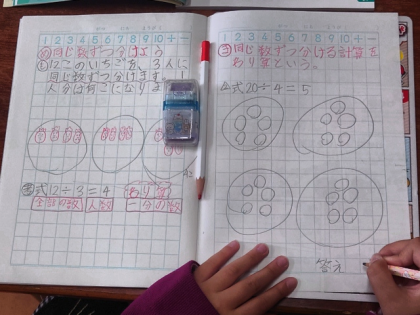 1 2 3 4 5 6 7 8 9 10 ＋ −
め 同じ数ずつ分けよう
も 12このいちごを、3人に
同じ数ずつ分けます。
人分は何こになりま
式12÷3=4 わり算
全部の数 人数 一人分の数
1 2 3 4 5 6 7 8 9 10 ＋ −
ま 同じ数ずつ分ける計算を
わり算という。
式20÷4=5
答え